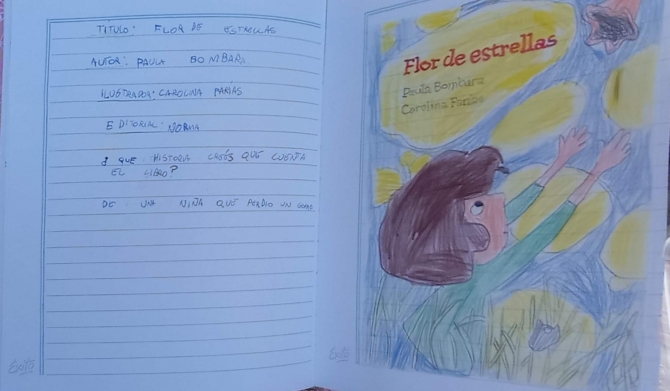 TÍTULO: FLOR DE ESTRELLAS
AUTOR: PAULA BOMBARA
ILUSTRADOR: CAROLINA FARÍAS
EDITORIAL: NORMA
¿QUE HISTORIA CREÉS QUÉ CUENTA
EL LIBRO?
DE UNA NIÑA QUÉ PERDIO UN
Flor de estrellas
Paula Bombara
Carolina Farías